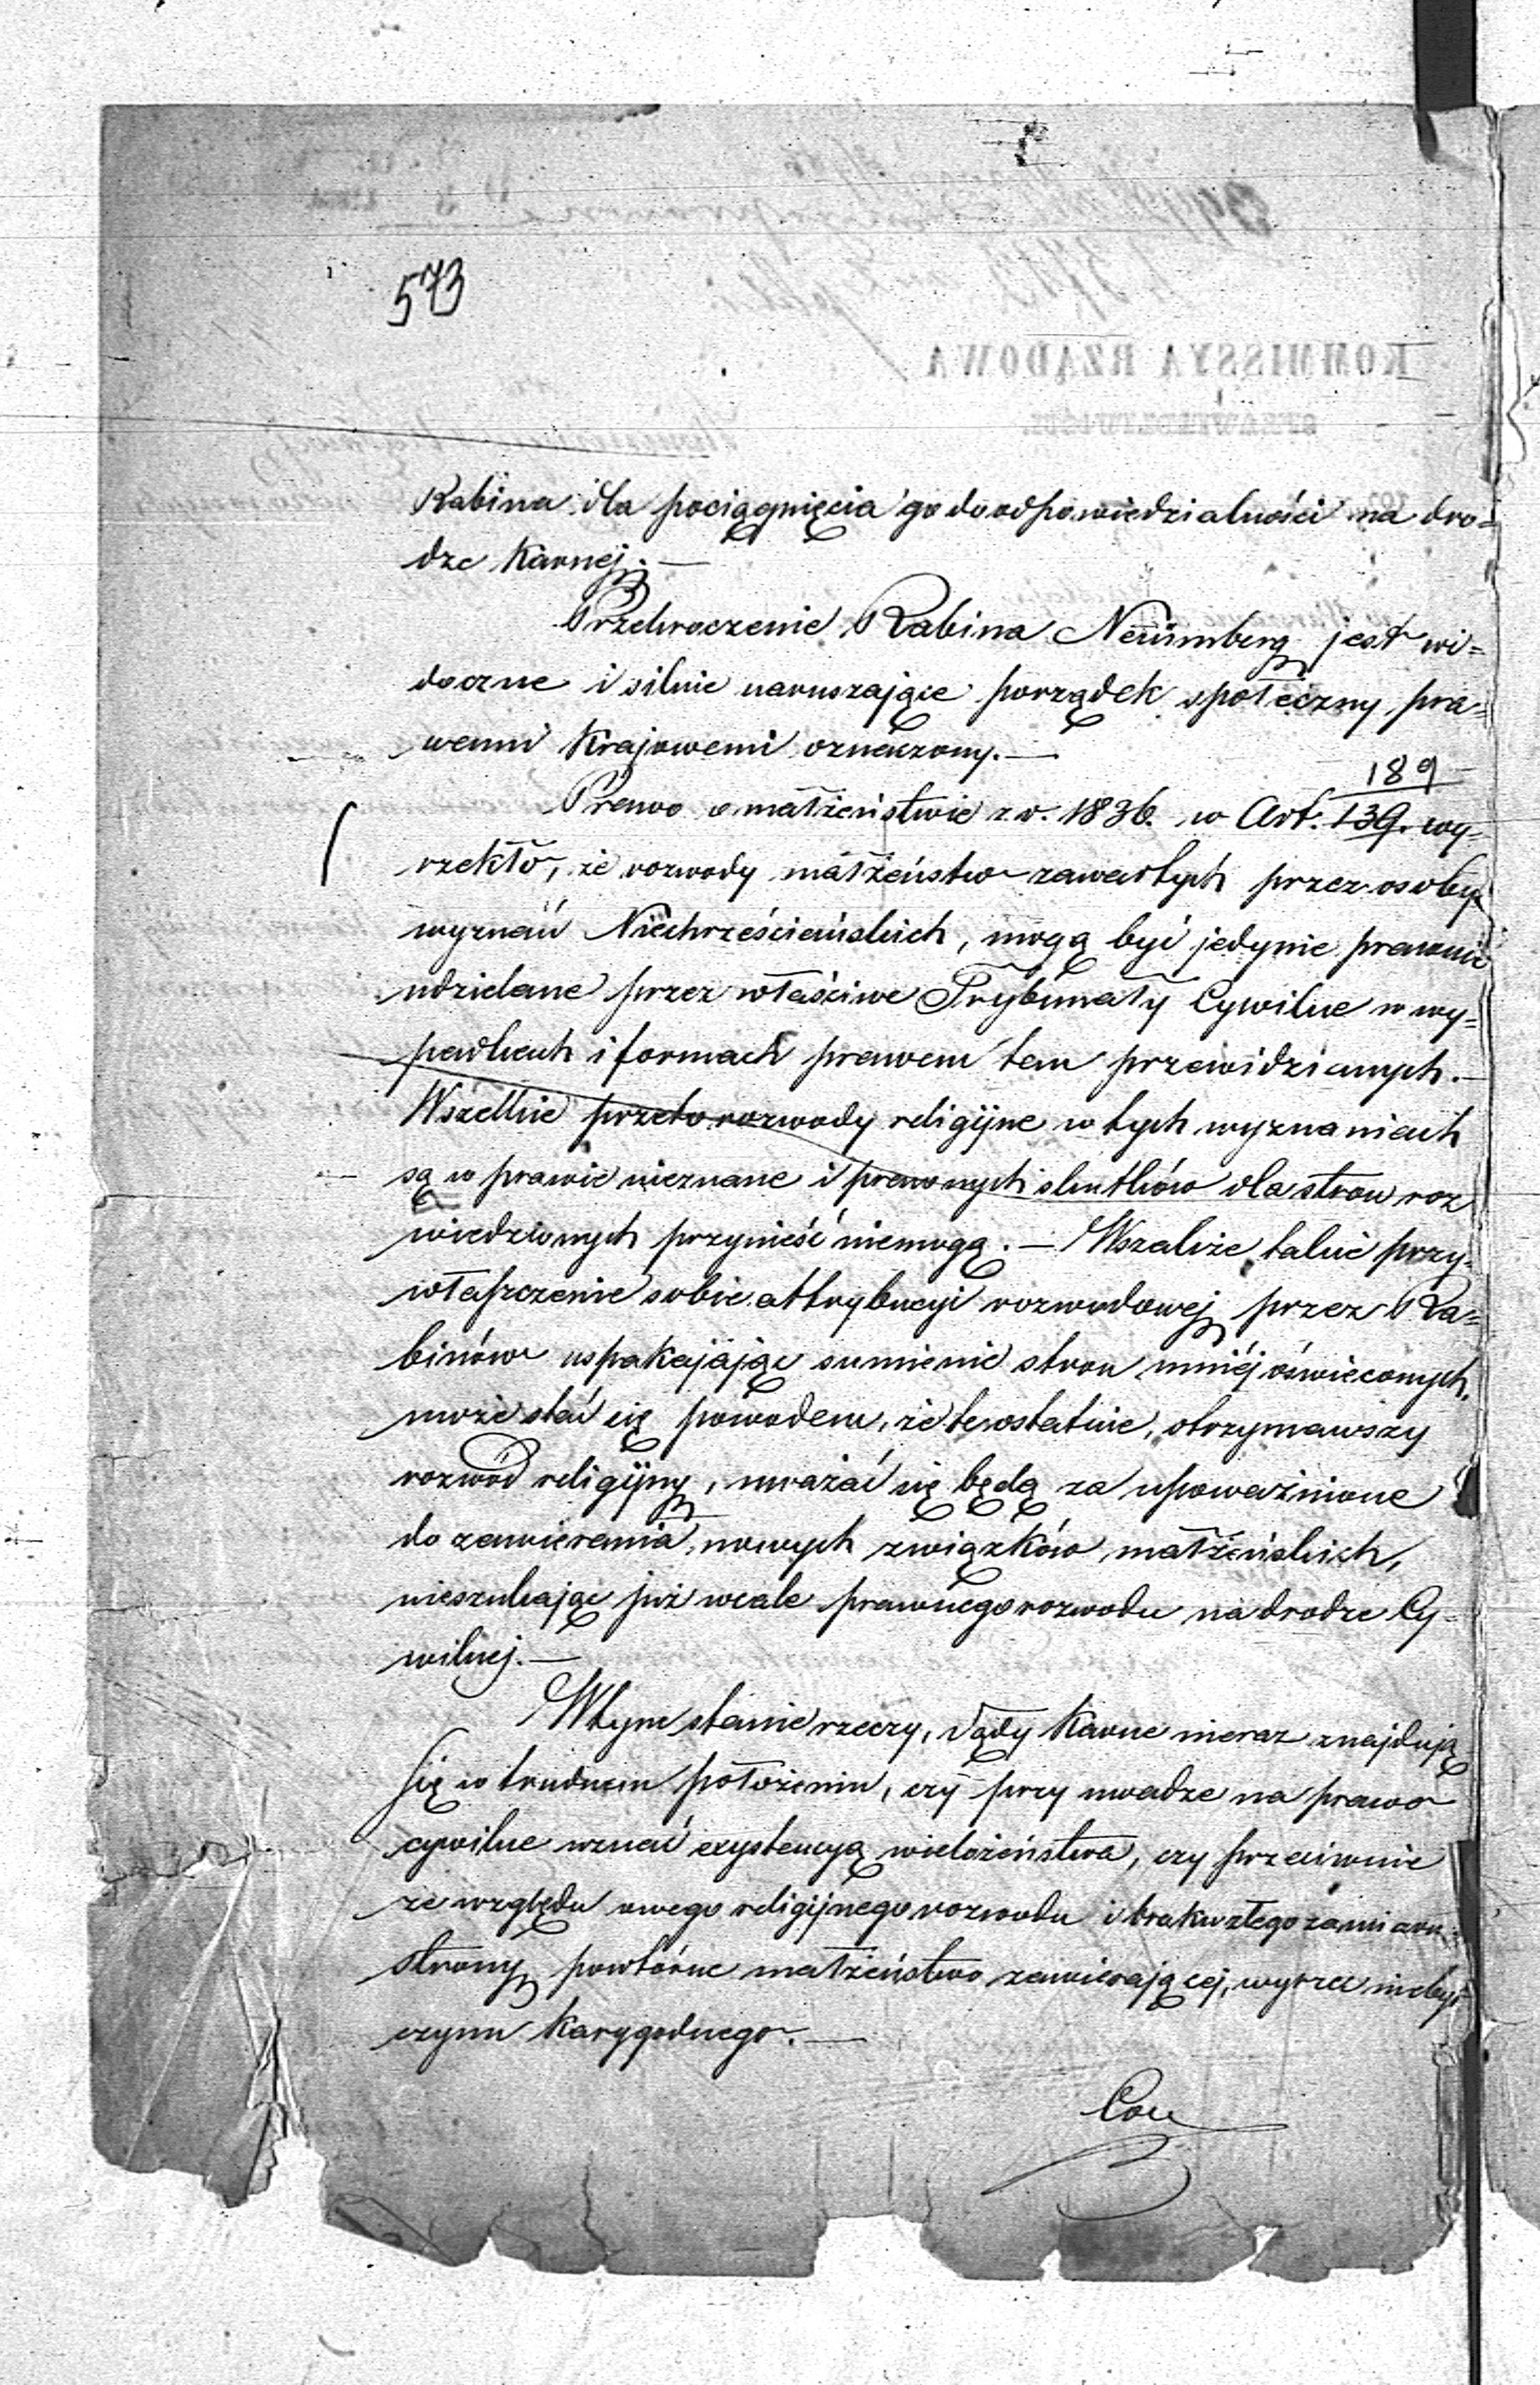 573
KOMMISSYA RZĄDOWA
Rabina dla pociągnięcia go do odpowiedzialności na dro=
dze Karnej.—
Przekroczenie Rabina Neüümberg jest wi=
doczne i silnie naruszające porządek społeczny pra=
wami Krajowemi oznaczony.—
189
Prawo o małżeństwie z r. 1836. w Art. 139. wy=
rzekło, że rozwody małżeństw zawartych przez osoby
wyznań Niechrześciańskich, mogą być jedynie prawnie
udzielane przez właściwe Trybunały Cywilne w wy=
padkach i formach prawem tem przewidzianych.—
Wszelkie przeto rozwody religijne w tych wyznaniach
są w prawie nieznane i prawnych skutków dla stron roz
wiedzionych przynieść niemogą.— Wszakże takie przy=
właszczenie sobie attrybucyi rozwodowej przez Ra=
binów uspakajając sumienie stron mniéj oświeconych,
może stać się powodem, że te ostatnie, otrzymawszy
rozwód religijny, uważać się będą za upoważnione
do zawierania nowych związków małżeńskich,
nieszukając już wcale prawnego rozwodu na drodze Cy=
wilnej.—
W tym stanie rzeczy, Sądy Karne nieraz znajdują
się w trudnem położeniu, czy przy uwadze na prawo
cywilne uznać exystencyą wielożeństwa, czy przeciwnie
ze względu owego religijnego rozwodu i braku złego zamiaru
strony powtórne małżeństwo zawierającej, wyrzec niebyt
czynu Karygodnego.—